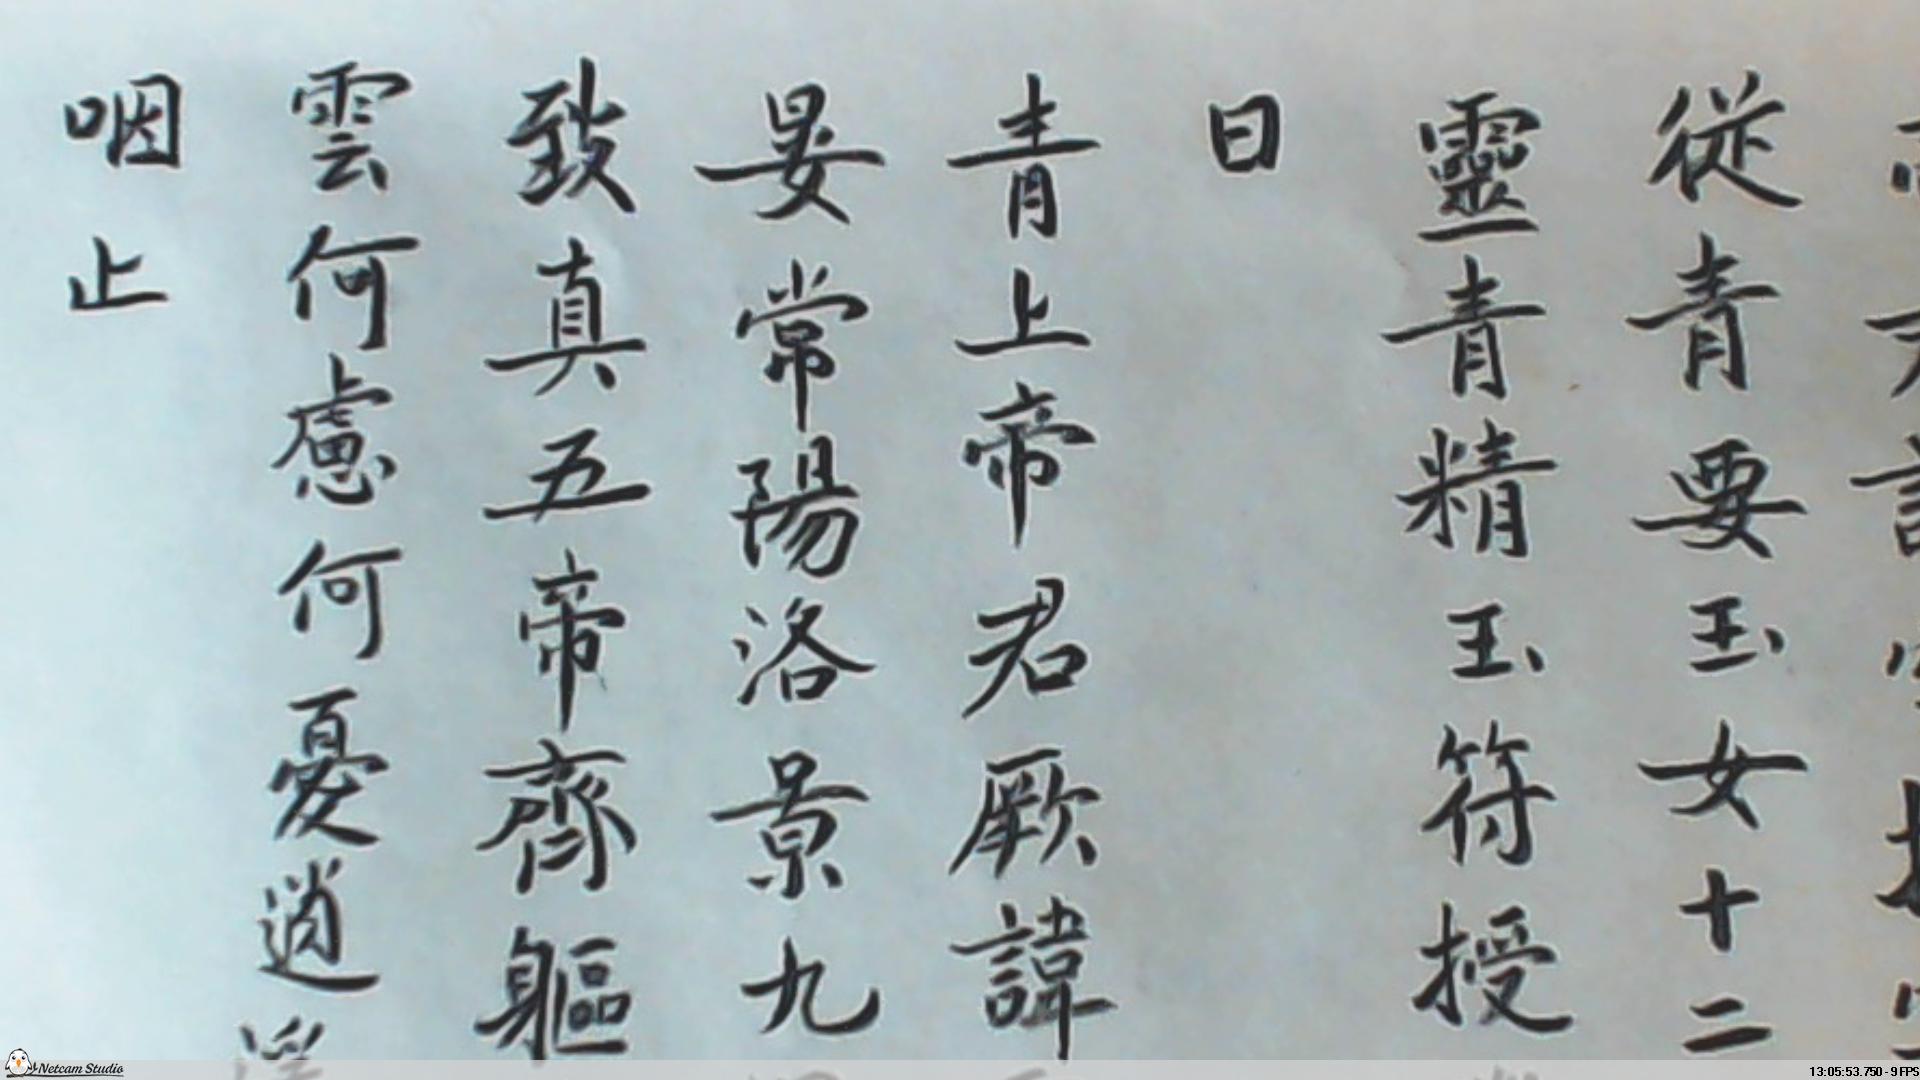 從青要玉女十二
靈青精玉符授
曰
青上帝君厥諱
晏常陽洛景九
致真五帝齊軀
雲何慮何憂逍
咽止
Netcam Studio
13:05:53.750 - 9 FPS